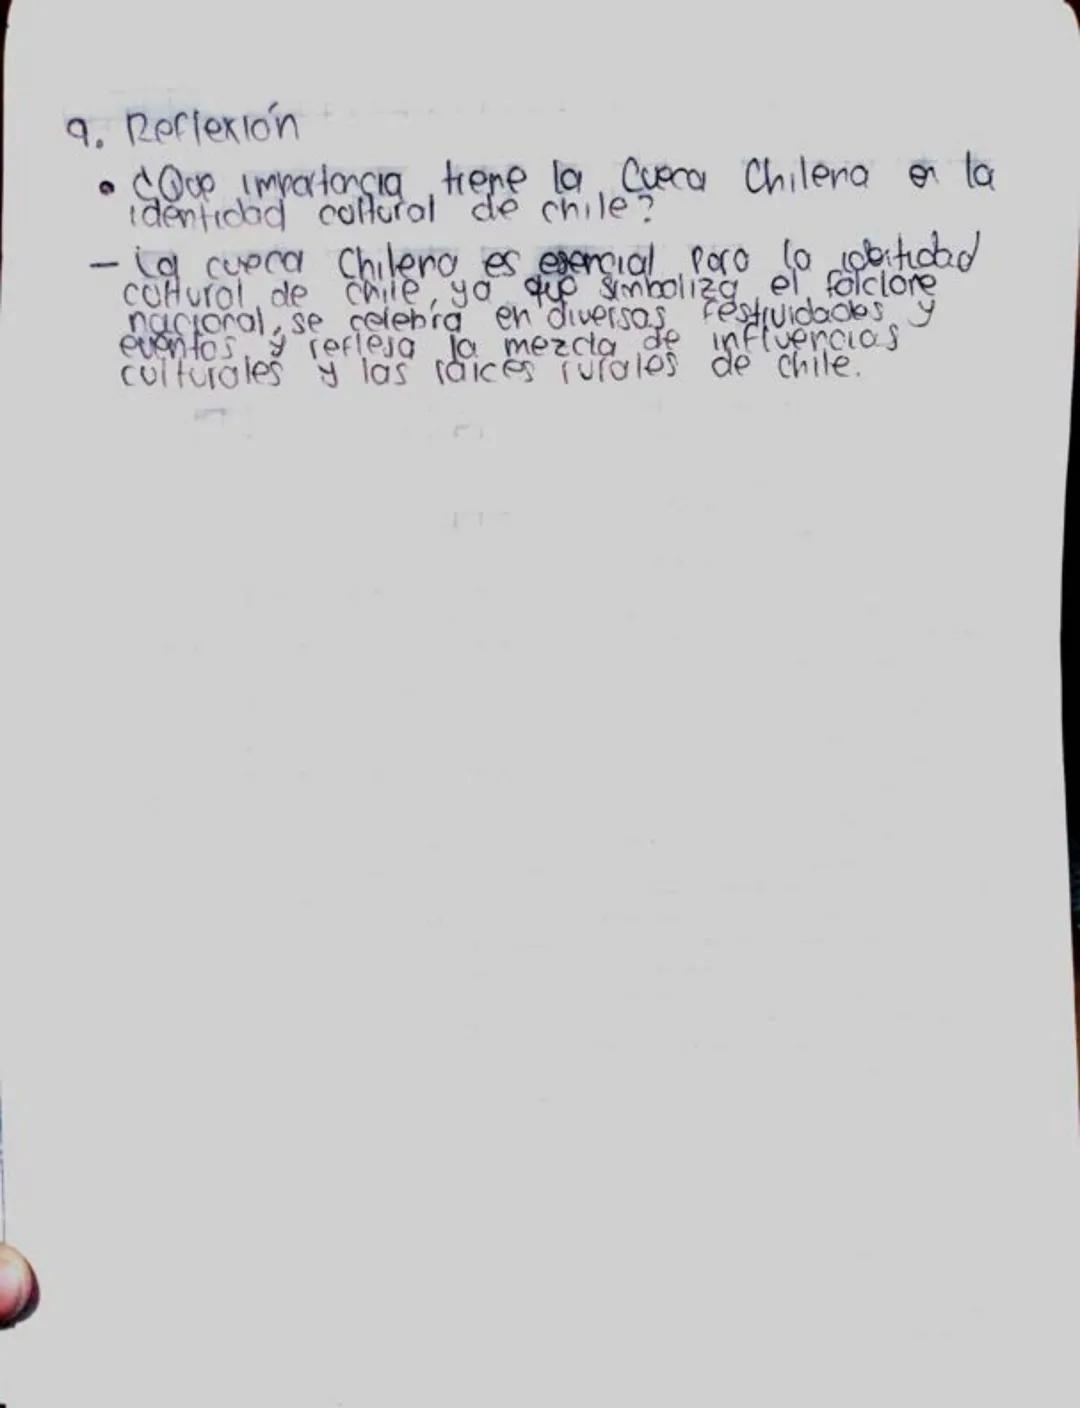 9. Reflexión
• ¿Que importancia tiene la Cueca Chilena en la
identidad cultural de chile?
- La cueca Chilena es esencial para la identidad
cultural de chile, ya que simboliza el folclore
nacional, se celebra en diversas festividades y
eventos y refleja la mezcla de influencias
culturales y las raices rurales de chile.